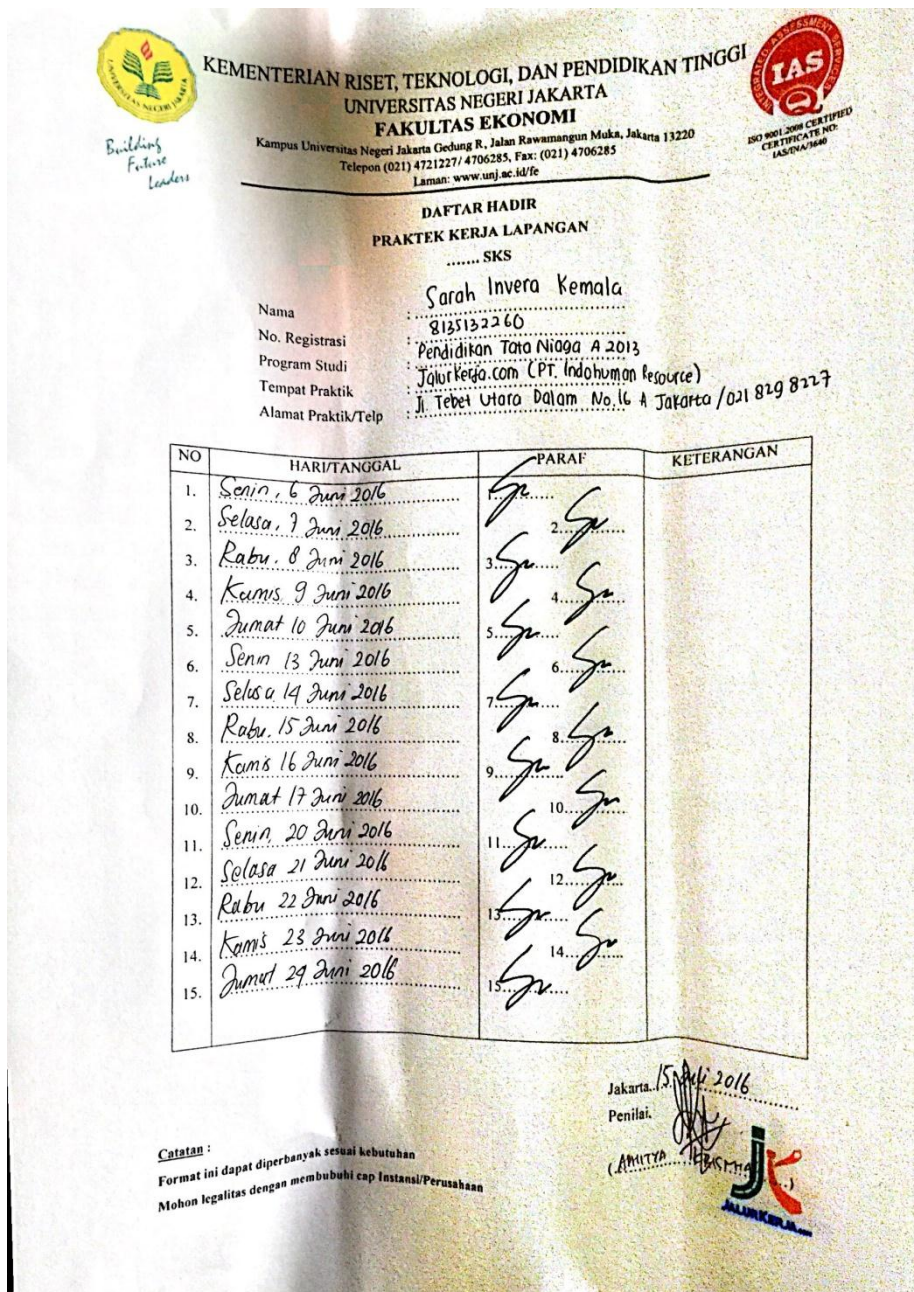 KEMENTERIAN RISET, TEKNOLOGI, DAN PENDIDIKAN TINGGI
UNIVERSITAS NEGERI JAKARTA
FAKULTAS EKONOMI
Kampus Universitas Negeri Jakarta Gedung R, Jalan Rawamangun Muka, Jakarta 13220
Telepon (021) 4721227/ 4706285, Fax: (021) 4706285
Laman: www.unj.ac.id/fe
UNIVERSITAS NEGERI JAKARTA
Building
Future
Leaders
INTEGRATED ASSESSMENT SERVICES
IAS
ISO 9001:2008 CERTIFIED
CERTIFICATE NO:
IAS/INA/3640
DAFTAR HADIR
PRAKTEK KERJA LAPANGAN
....... SKS
Nama : Sarah Invera Kemala
No. Registrasi : 8135132260
Program Studi : Pendidikan Tata Niaga A 2013
Tempat Praktik : Jalurkerja.com (PT. Indohuman Resource)
Alamat Praktik/Telp : Jl. Tebet Utara Dalam No.16 A Jakarta / 021 829 8227
NO HARI/TANGGAL PARAF KETERANGAN
1. Senin, 6 Juni 2016 1.
2. Selasa, 7 Juni 2016 2.
3. Rabu, 8 Juni 2016 3.
4. Kamis 9 Juni 2016 4.
5. Jumat 10 Juni 2016 5.
6. Senin 13 Juni 2016 6.
7. Selasa 14 Juni 2016 7.
8. Rabu, 15 Juni 2016 8.
9. Kamis 16 Juni 2016 9.
10. Jumat 17 Juni 2016 10.
11. Senin, 20 Juni 2016 11.
12. Selasa 21 Juni 2016 12.
13. Rabu 22 Juni 2016 13.
14. Kamis 23 Juni 2016 14.
15. Jumat 24 Juni 2016 15.
Jakarta, 15 Juli 2016
Penilai,
JK
JALURKERJA.com
Catatan :
Format ini dapat diperbanyak sesuai kebutuhan
Mohon legalitas dengan membubuhi cap Instansi/Perusahaan